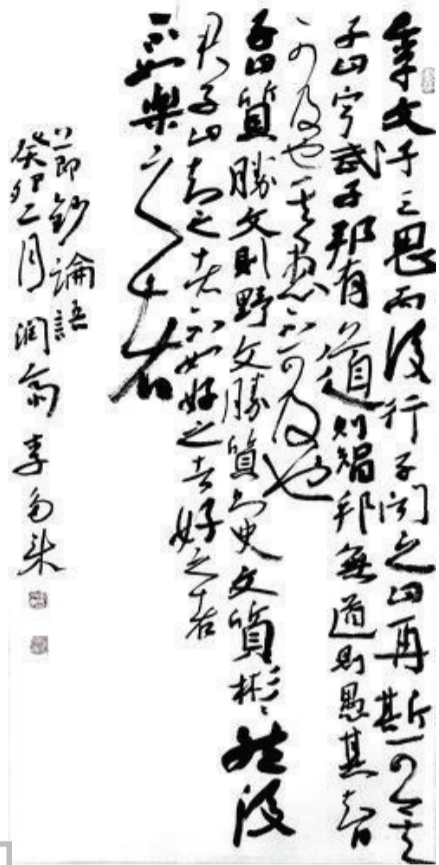 季文子三思而後行子聞之曰再斯可矣
子曰宁武子邦有道則智邦無道則愚其智
可及也其愚不可及也
子曰質勝文則野文勝質則史文質彬彬然後
君子曰知之者不如好之者好之者
不如樂之者
節鈔論語
癸卯二月潤 李